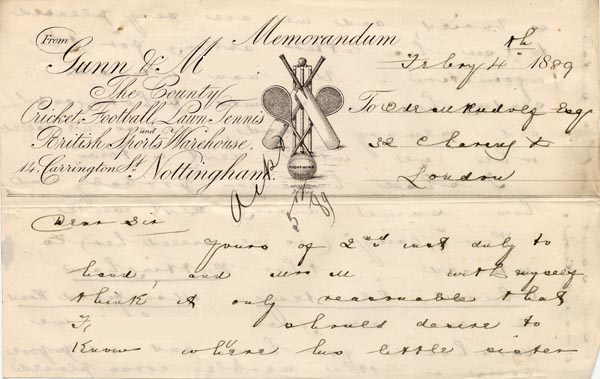 From
Memorandum
Gunn & M
The County
Cricket, Football, Lawn Tennis
and
British Sports Warehouse,
14, Carrington St. Nottingham.
Febry 4th 1889
To Esq
Charing X
London
Dear Sir
Yours of 2nd inst duly to
hand, and Mrs M with myself
think it only reasonable that
F should desire to
know where his little sister